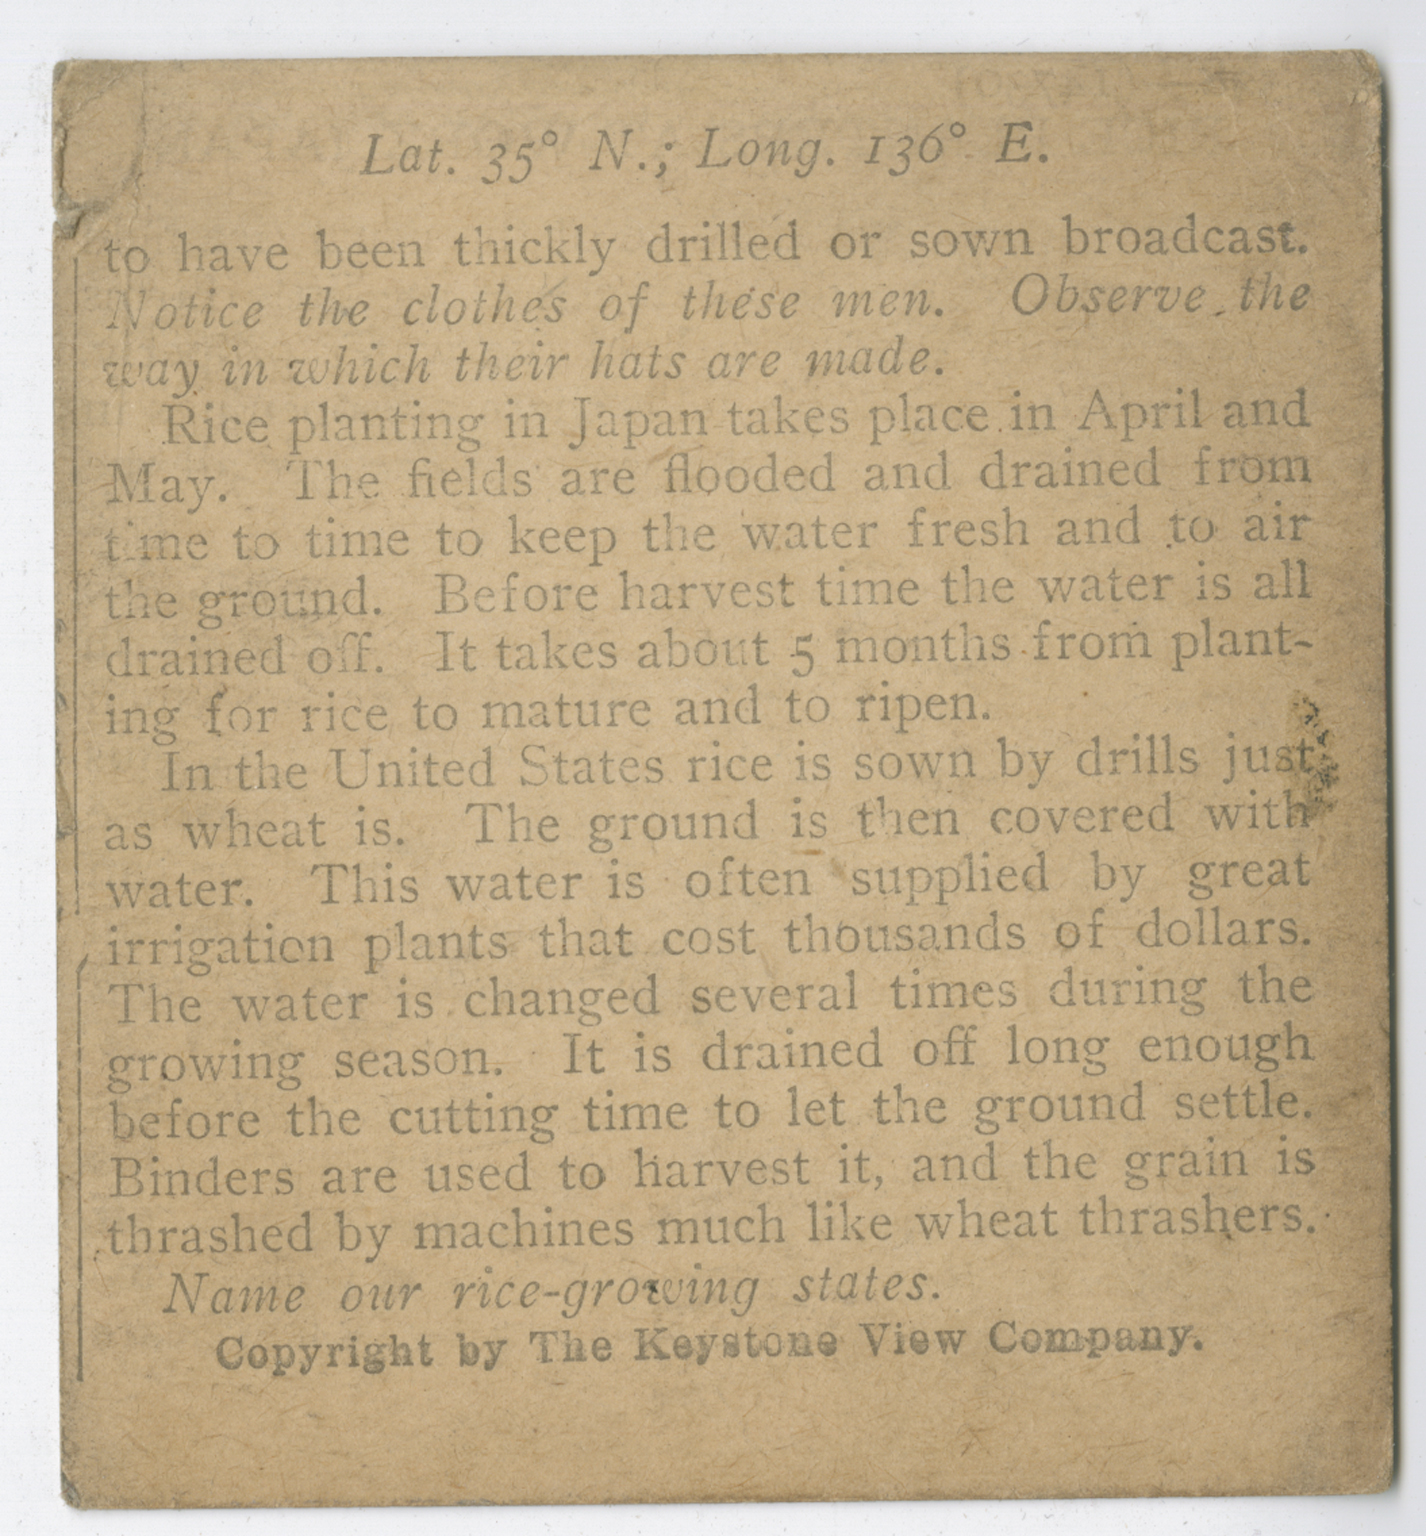 Lat. 35° N.; Long. 136° E.
to have been thickly drilled or sown broadcast.
Notice the clothes of these men. Observe the
way in which their hats are made.
Rice planting in Japan takes place in April and
May. The fields are flooded and drained from
time to time to keep the water fresh and to air
the ground. Before harvest time the water is all
drained off. It takes about 5 months from plant-
ing for rice to mature and to ripen.
In the United States rice is sown by drills just
as wheat is. The ground is then covered with
water. This water is often supplied by great
irrigation plants that cost thousands of dollars.
The water is changed several times during the
growing season. It is drained off long enough
before the cutting time to let the ground settle.
Binders are used to harvest it, and the grain is
thrashed by machines much like wheat thrashers.
Name our rice-growing states.
Copyright by The Keystone View Company.